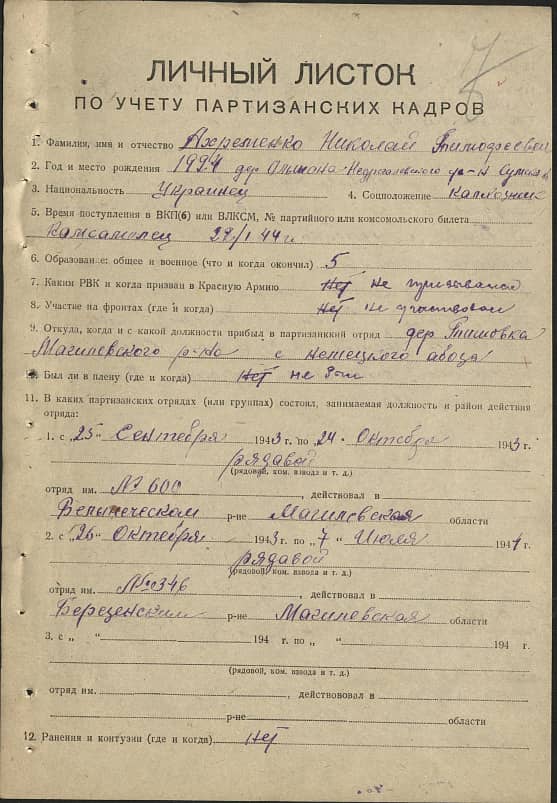 ЛИЧНЫЙ ЛИСТОК
ПО УЧЕТУ ПАРТИЗАНСКИХ КАДРОВ
1. Фамилия, имя и отчество Ахременко Николай Тимофеевич
2. Год и место рождения 1924 дер Недригаловского р-н Сумская
3. Национальность Украинец 4. Соцположение Калхозник
5. Время поступления в ВКП(б) или ВЛКСМ, № партийного или комсомольского билета
Камсамолец 29/I 44 г.
6. Образование: общее и военное (что и когда окончил) 5
7. Каким РВК и когда призван в Красную Армию Нет не призывался
8. Участие на фронтах (где и когда) Нет не участвовал
9. Откуда, когда и с какой должности прибыл в партизанкий отряд дер Тишовка
Магилевского р-на с немецкого абоза
10. Был ли в плену (где и когда) Нет не был
11. В каких партизанских отрядах (или группах) состоял, занимаемая должность и район действия
отряда:
1. с „25" Сентября 1943 г. по „24" Октября 1943 г.
рядавой
(рядовой, ком. взвода и т. д.)
отряд им. № 600, действовал в
Белыническом р-не Магилевская области
2. с „26" Октября 1943 г. по „7" Июля 1944 г.
рядавой
(рядовой, ком. взвода и т. д.)
отряд им. № 346, действовал в
Березенским р-не Магилевская области
3. с „ " 194 г. по „ " 194 г.
(рядовой, ком. взвода и т. д.)
отряд им. , действововал в
р-не области
12. Ранения и контузии (где и когда) Нет